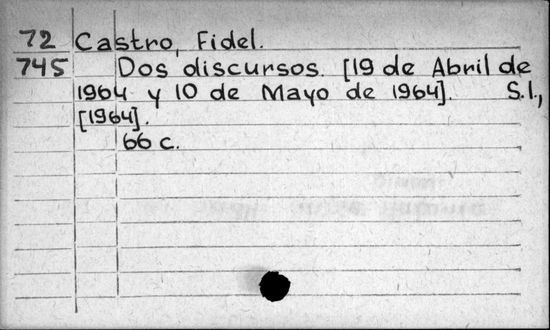 72 Castro, Fidel.
745 Dos discursos. [19 de Abril de
1964 y 10 de Mayo de 1964]. S.l.,
[1964].
66 c.